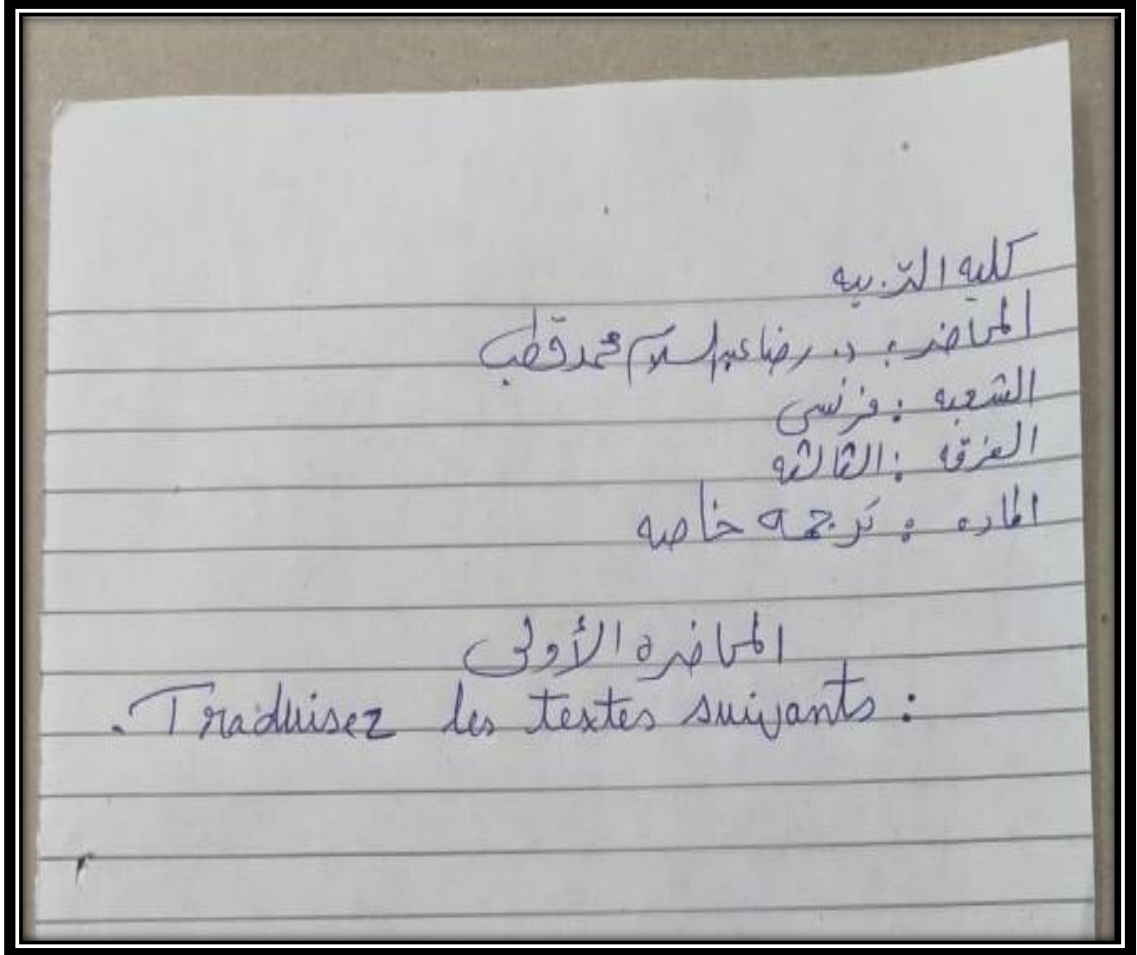 كليه التربيه
المحاضر : د. رضا عبدالسلام محمد قطب
الشعبه : فرنسى
الفرقه : الثالثه
الماده : ترجمه خاصه
المحاضره الأولى
. Traduisez les textes suivants :